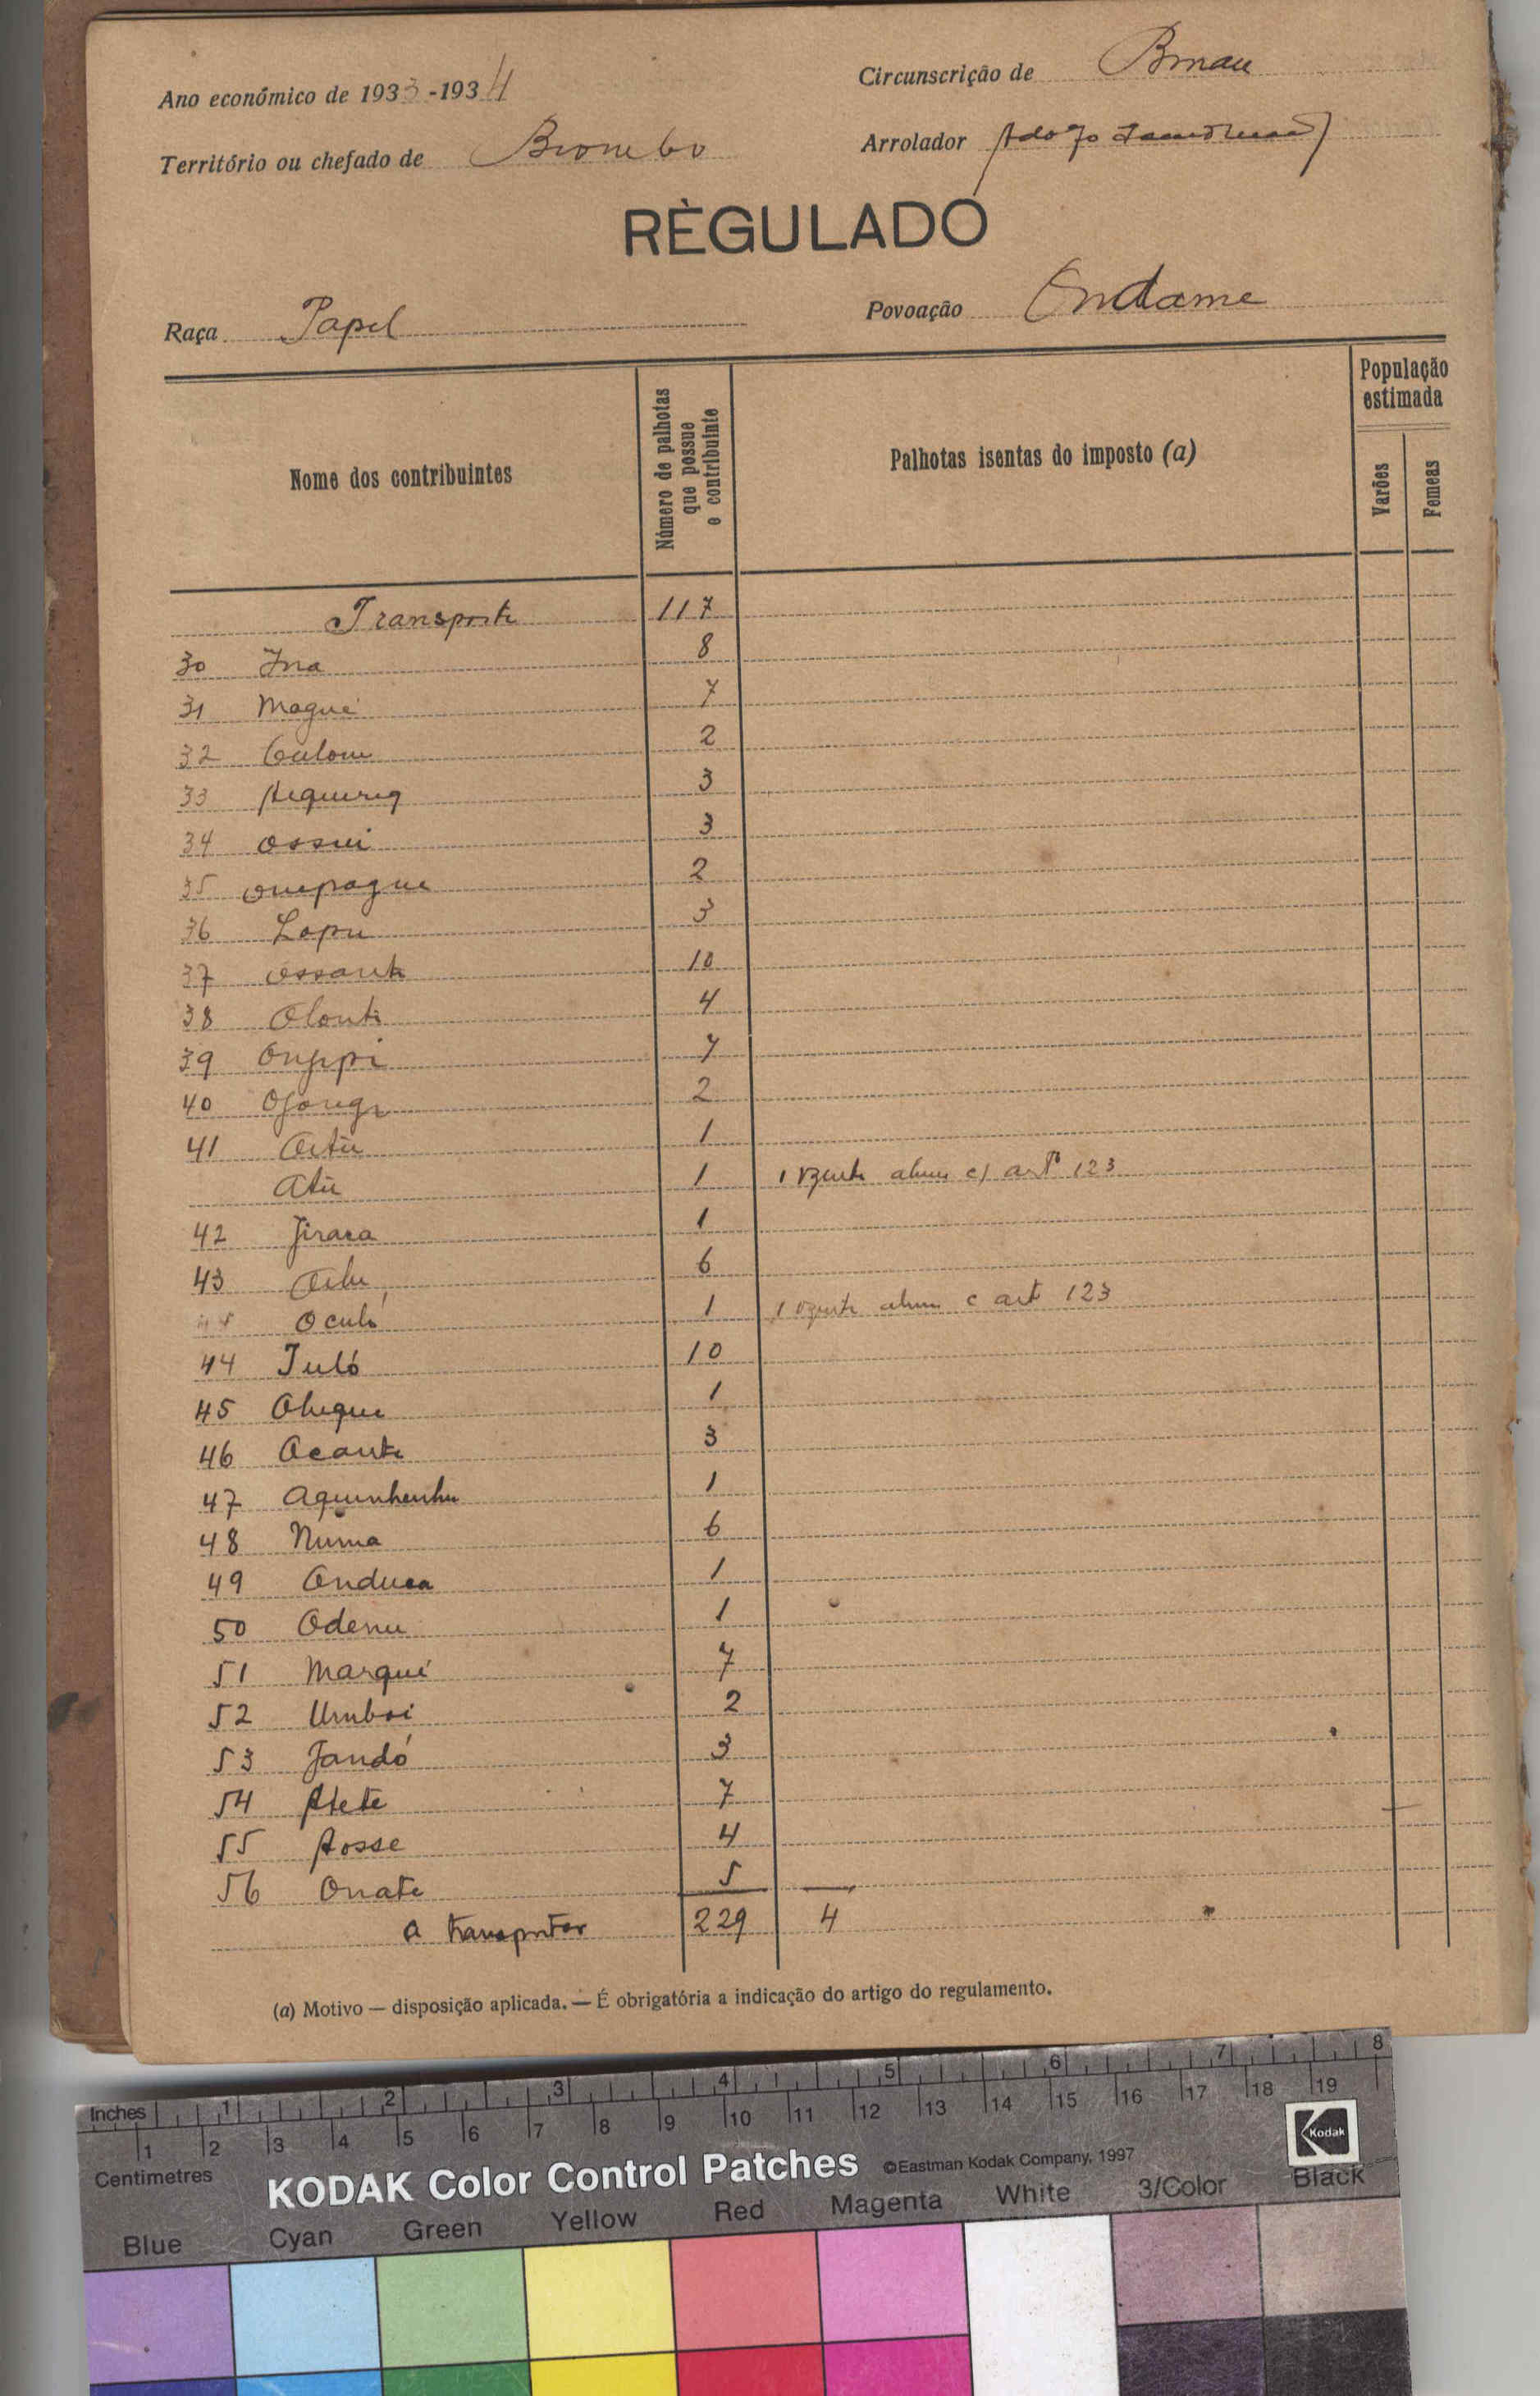 Ano económico de 1933-1934
Circunscrição de Bissau
Território ou chefado de Biombo
Arrolador Adolfo
RÈGULADO
Raça Papel
Povoação Ondame
Nome dos contribuintes
Número de palhotas que possue o contribuinte
Palhotas isentas do imposto (a)
População estimada
Varões
Femeas
Transporte 117
30 Ina 8
31 Magué 7
32 2
33 3
34 Ossui 3
35 2
36 Lopu 3
37 Ossante 10
38 Olonti 4
39 7
40 2
41 1
Atú 1 1 c/ artº 123
42 Jiraca 1
43 6
Oculó 1 1 c art 123
44 Tuló 10
45 Ohuque 1
46 Acante 3
47 Aquinhenhu 1
48 Numa 6
49 Onduca 1
50 Odenu 1
51 Marqué 7
52 Umboi 2
53 Jandó 3
54 Atete 7
55 Aosse 4
56 Onate 5
A transportar 229 4
(a) Motivo — disposição aplicada. — É obrigatória a indicação do artigo do regulamento.
Inches 1 2 3 4 5 6 7 8
1 2 3 4 5 6 7 8 9 10 11 12 13 14 15 16 17 18 19
Centimetres
KODAK Color Control Patches ©Eastman Kodak Company, 1997
Kodak
Blue Cyan Green Yellow Red Magenta White 3/Color Black